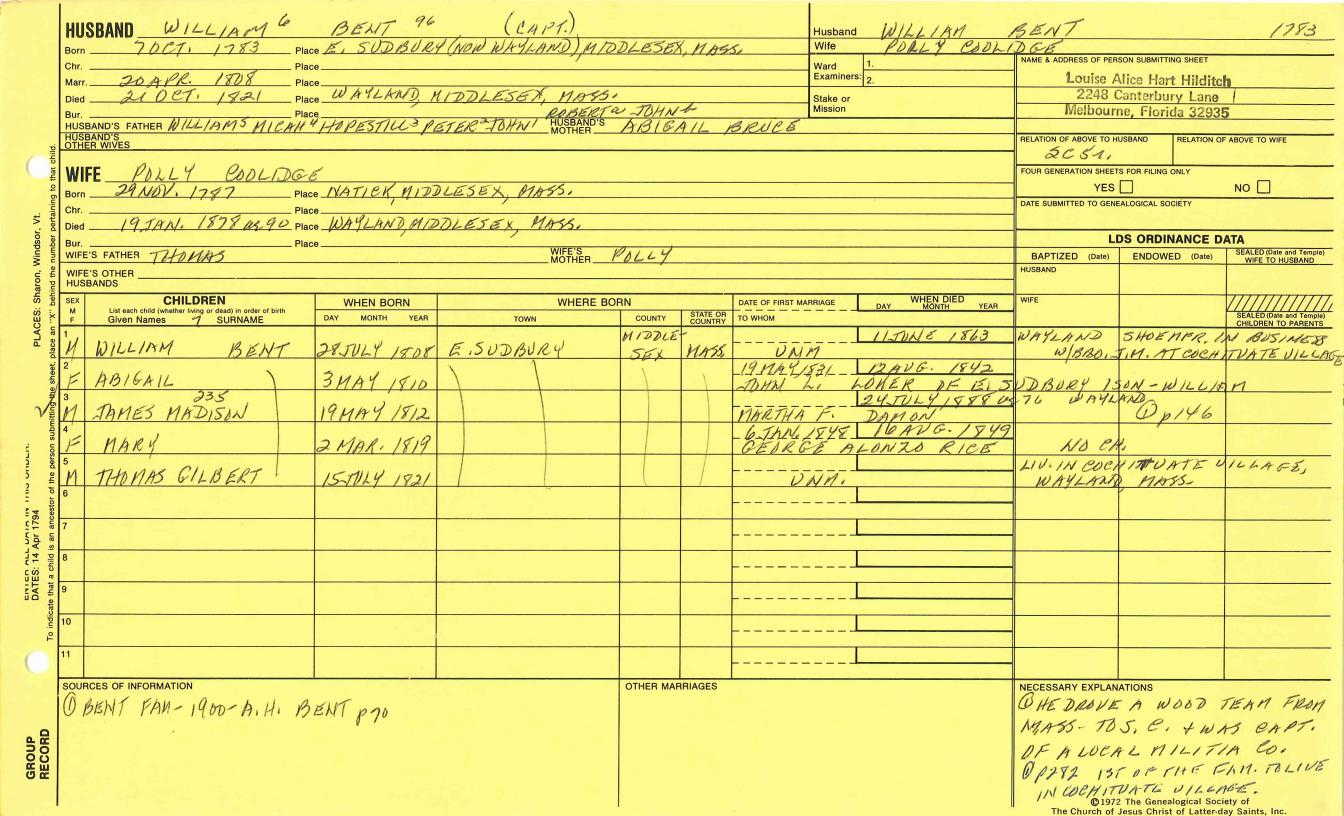 HUSBAND WILLIAM⁶ BENT ⁹⁶ (CAPT.)
Born 7 OCT. 1783 Place E. SUDBURY (NOW WAYLAND), MIDDLESEX, MASS.
Chr. Place
Marr. 20 APR. 1808 Place
Died 21 OCT. 1821 Place WAYLAND, MIDDLESEX, MASS.
Bur. Place
HUSBAND'S FATHER WILLIAM⁵ MICAH⁴ HOPESTILL³ PETER² JOHN¹ ROBERT² JOHN⁴ HUSBAND'S MOTHER ABIGAIL BRUCE
HUSBAND'S OTHER WIVES
WIFE POLLY COOLIDGE
Born 29 NOV. 1787 Place NATICK, MIDDLESEX, MASS.
Chr. Place
Died 19 JAN. 1878 ae 90 Place WAYLAND, MIDDLESEX, MASS.
Bur. Place
WIFE'S FATHER THOMAS WIFE'S MOTHER POLLY
WIFE'S OTHER HUSBANDS
Husband WILLIAM BENT 1783
Wife POLLY COOLIDGE
Ward Examiners: 1.
2.
Stake or Mission
NAME & ADDRESS OF PERSON SUBMITTING SHEET
Louise Alice Hart Hilditch
2248 Canterbury Lane
Melbourne, Florida 32935
RELATION OF ABOVE TO HUSBAND RELATION OF ABOVE TO WIFE
2C5r.
FOUR GENERATION SHEETS FOR FILING ONLY
YES NO
DATE SUBMITTED TO GENEALOGICAL SOCIETY
LDS ORDINANCE DATA
BAPTIZED (Date) ENDOWED (Date) SEALED (Date and Temple) WIFE TO HUSBAND
HUSBAND
WIFE
SEALED (Date and Temple) CHILDREN TO PARENTS
SEX M F CHILDREN WHEN BORN WHERE BORN DATE OF FIRST MARRIAGE WHEN DIED
List each child (whether living or dead) in order of birth
Given Names SURNAME DAY MONTH YEAR TOWN COUNTY STATE OR COUNTRY TO WHOM DAY MONTH YEAR
1 M WILLIAM BENT 28 JULY 1808 E. SUDBURY MIDDLESEX MASS UNM 11 JUNE 1863 WAYLAND SHOEMFR. IN BUSINESS
W/BRO. J.M. AT COCHITUATE VILLAGE
2 F ABIGAIL 3 MAY 1810 19 MAY 1831 12 AUG. 1842
JOHN L. LOKER OF E. SUDBURY 1 SON - WILLIAM
3 M JAMES MADISON 235 19 MAY 1812 24 JULY 1888 ae 76 WAYLAND
MARTHA F. DAMON ① p146
4 F MARY 2 MAR. 1819 6 JAN. 1848 16 AUG. 1849
GEORGE ALONZO RICE NO CH.
5 M THOMAS GILBERT 15 JULY 1821 UNM. LIV. IN COCHITUATE VILLAGE,
WAYLAND, MASS
6
7
8
9
10
11
SOURCES OF INFORMATION
① BENT FAM - 1900 - A.H. BENT p70
OTHER MARRIAGES
NECESSARY EXPLANATIONS
① HE DROVE A WOOD TEAM FROM
MASS - TO S. C. + WAS CAPT.
OF A LOCAL MILITIA CO.
① p282 1ST OF THE FAM. TO LIVE
IN COCHITUATE VILLAGE.
©1972 The Genealogical Society of
The Church of Jesus Christ of Latter-day Saints, Inc.
PLACES: Sharon, Windsor, Vt.
DATES: 14 Apr 1794
To indicate that a child is an ancestor of the person submitting the sheet, place an "X" behind the number pertaining to that child.
GROUP RECORD